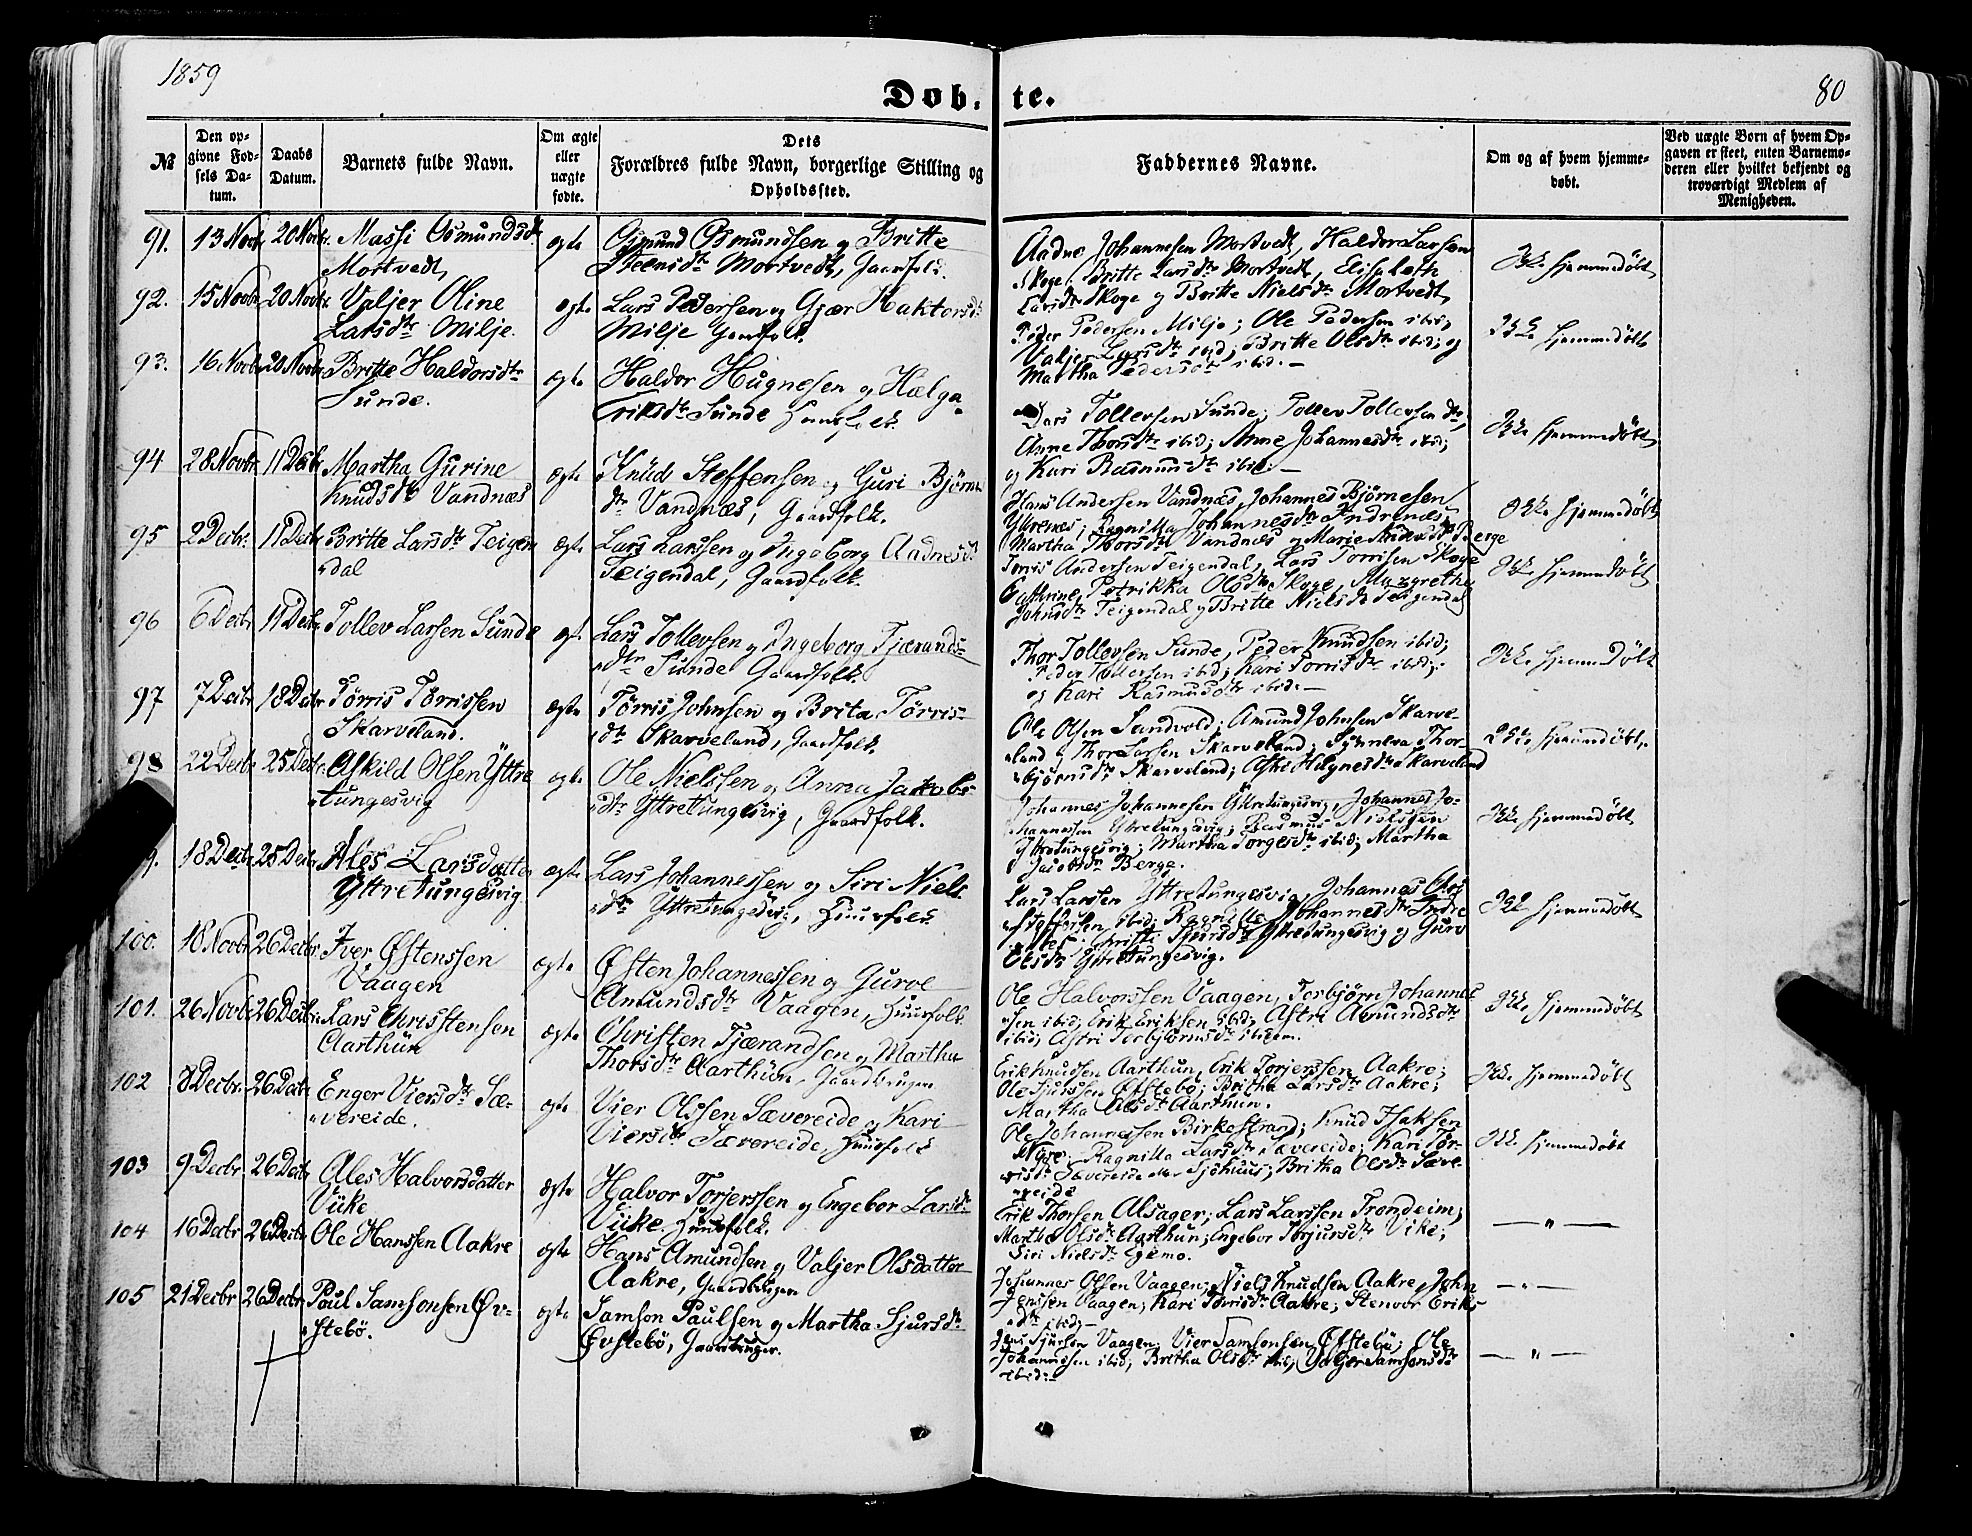 1859
80
Døb- te.
№
Den op-
givne Fød-
sels Da-
tum.
Daabs
Datum.
Barnets fulde Navn.
Om ægte
eller
uægte
fødte.
Dets
Forældres fulde Navn, borgerlige Stilling og
Opholdssted.
Faddernes Navne.
Om og af hvem hjemme-
døbt.
Ved uægte Børn af hvem Op-
gaven er skeet, enten Barnemo-
deren eller hvilket bekjendt og
troværdigt Medlem af
Menigheden.
91. 13 Novbr 20 Novbr. Massi Osmundsdtr
Mortvedt,
ægte
Osmund Osmundsen og Britte
Steensdtr Mortvedt, Gaardfolk.
Aadne Johannesen Mortvedt, Haldor Larsen
Skoge, Britte Larsdtr Mortvedt, Elisabeth
Larsdtr Skoge og Britte Nielsdtr Mortvedt
Ikke hjemmedøbt
92. 15 Novbr. 20 Novbr. Valjer Oline
Larsdtr Milje.
ægte
Lars Pedersen og Gjær Haktorsdtr
Milje Gaardfolk.
Peder Pedersen Milje; Ole Pedersen ibid;
Valjer Larsdtr ibid; Britte Olsdtr ibid; og
Martha Pedersdtr ibid. —
Ikke hjemmedøbt
93. 16 Novbr. 20 Novbr. Britte Haldorsdtr
Sunde.
ægte
Haldor Hugnesen og Hælga
Eriksdtr Sunde Huusfolk.
Lars Tollevsen Sunde; Tollev Tollevsen
Anne Thorsdtr ibid; Anne Johannesdtr ibid;
og Kari Rasmusdtr ibid. —
Ikke hjemmedøbt
94 28 Novbr. 11 Decbr Martha Gurine
Knudsdtr Vandnæs
ægte
Knud Steffensen og Guri Bjørns
dtr Vandnæs, Gaardfolk.
Hans Andersen Vandnæs, Johannes Bjørnesen
Yttrenes; Ragnilla Johannesdtr Indrenæs,
Martha Thorsdtr Vandnæs og Marie Berge
Ikke hjemmedøbt
95 2 Decbr. 11 Decbr Britte Larsdtr Teigen
dal
ægte
Lars Larssen og Ingeborg Aadnesdtr
Teigendal, Gaardfolk.
Tørris Andersen Teigendal, Lars Torrisen Skoge
Cathrine Petrikka Olsdtr Skoge, Margrethe
Johnsdtr Teigendal og Britte Nielsdtr Teigendal
Ikke hjemmedøbt
96 6 Decbr 11 Decbr. Tollev Larsen Sunde
ægte
Lars Tollevsen og Ingeborg Tjærands-
dtr Sunde Gaardfolk.
Thor Tollevsen Sunde, Peder Knudsen ibid;
Peder Tollevsen ibid; Kari Torrisdtr ibid;
og Kari Rasmusdtr ibid. —
Ikke hjemmedøbt
97 7 Decbr 18 Decbr Tørris Tørrissen
Skarveland.
ægte
Tørris Johnsen og Brita Tørris-
dtr Skarveland, Gaardfolk.
Ole Olsen Sandvold; Amund Johnsen Skarve-
land, Thor Larsen Skarveland; Synneva Thor-
bjørnsdtr Skarveland; Skarveland
Ikke hjemmedøbt.
98 22 Decbr 25 Decbr. Askild Olsen Yttre
tungesvig
ægte
Ole Nielssen og Anna Jakobs-
dtr Yttretungesvig, Gaardfolk.
Johannes Johannesen Yttretungesvig, Johannes Jo-
hannessen Yttretungesvig; Rasmus Nielssen
Yttretungesvig; Martha Torgesdtr ibid; Martha
Jacobsdtr Berge.
Ikke hjemmedøbt
9. 18 Decbr 25 Decbr. Ales Larsdatter
Yttretungesvig
ægte
Lars Johannessen og Siri Niels
dtr Yttretungesvig, Huusfolk.
Lars Larsen Yttretungesvig, Johannes
Steffensen ibid; Ragnille Johannesdtr Indre
Christi Sjursdtr Yttretungesvig og Gurv
Olsdtr Yttretungesvig.
Ikke hjemmedøbt
100. 18 Novbr 26 Decbr. Iver Østenssen
Vaagen
ægte
Østen Johannessen og Gurve
Amundsdtr Vaagen, Huusfolk.
Ole Halvorssen Vaagen, Torbjørn Johannes-
sen ibid; Erik Eriksen ibid; Astri Amundsdtr
ibid; Astri Torbjørnsdtr ibidem.
Ikke hjemmedøbt
101. 26 Novbr 26 Decbr. Lars Christensen
Aarthun
ægte
Christen Tjærandsen og Martha
Thorsdtr Aarthun, Gaardbruger.
Erik Knudsen Aarthun, Erik Torjerssen Aakre;
Ole Sjurssen Øfstebø; Britha Larsdtr Aakre;
Martha Olsdtr Aarthun.
Ikke hjemmedøbt
102 8 Decbr. 26 Decbr Enger Viersdtr Sæ-
vereide.
ægte
Vier Olssen Sævereide og Kari
Viersdtr Sævereide, Huusfolk
Ole Johannessen Birkestrand; Knud Isaksen
Nygre; Ragnilla Larsdtr Sævereide; Kari Tør-
risdtr Sævereide Sjøhuus; Britha Olsdtr Sæve-
reide
Ikke hjemmedøbt
103 9 Decbr. 26 Decbr Ales Halvorsdatter
Viike
ægte
Halvor Torjerssen og Engebor Larsdtr
Viike, Huusfolk.
Erik Thorsen Alsager; Lars Larssen Trondeim;
Martha Olsdtr Aarthun; Engebor Torjursdtr Vike;
Siri Nielsdtr
— " —
104 16 Decbr 26 Decbr. Ole Hanssen Aakre
ægte
Hans Amundsen og Valjer Olsdatter
Aakre, Gaardbruger
Johannes Olsen Vaagen; Niels Knudsen Aakre, John
Jenssen Vaagen; Kari Tørrisdtr Aakre; Stenvor Eriks-
dtr ibid; —
— " —
105 21 Decbr 26 Decbr Paul Samsonsen Øv-
stebø.
ægte
Samson Paulsen og Martha Sjursdtr
Øvstebø, Gaardbruger.
Jens Sjursen Vaagen; Vier Samsonsen Øfstebø; Ole
Johannesen ibid; Britha Olsdtr ibid; Valjer Samsonsdtr
ibid. —
— " —